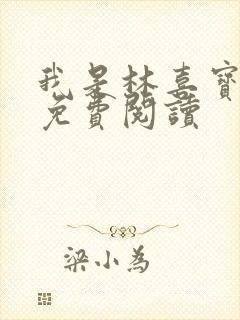 我是林喜寶
免費閱讀
梁小為